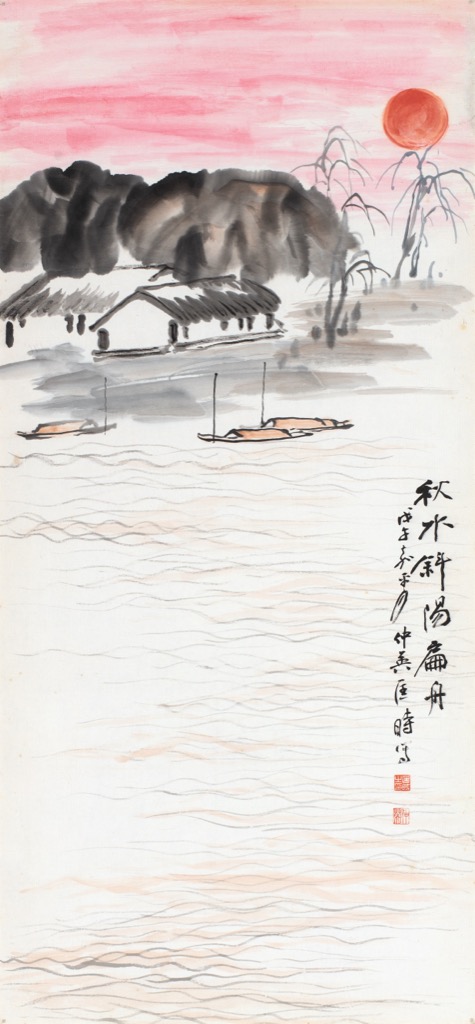 秋水斜陽扁舟
戊午嘉平月仲英匡時寫